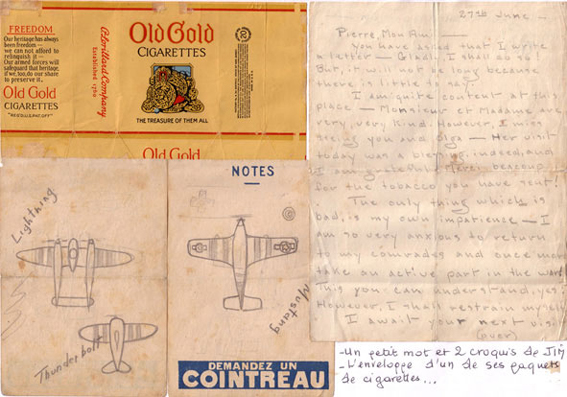 FREEDOM
Our heritage has always
been freedom —
we can not afford to
relinquish it —
Our armed forces will
safeguard that heritage,
if we, too, do our share
to preserve it.
Old Gold
CIGARETTES
P. Lorillard Company
Established 1760
Old Gold
CIGARETTES
THE TREASURE OF THEM ALL
Old Gold
27th June —
Pierre, Mon Ami
You have asked that I write
a letter — Gladly I shall do so!
But, it will not be long because
there is little to say.
I am quite content at this
place — Monsieur et Madame are
very, very kind. However, I miss
you and Olga — Her visit
today was a blessing indeed, and
I am grateful. Merci beaucoup
for the tobacco you have sent!
The only thing which is
bad, is my own impatience — I
am so very anxious to return
my comrades and once more
take an active part in the war.
This you can understand, yes?
However, I shall restrain myself
I await your next visit
(over)
Lightning
Thunderbolt
NOTES
Mustang
DEMANDEZ UN
COINTREAU
-Un petit mot et 2 croquis de JIM
-L'enveloppe d'un de ses paquets
de cigarettes...